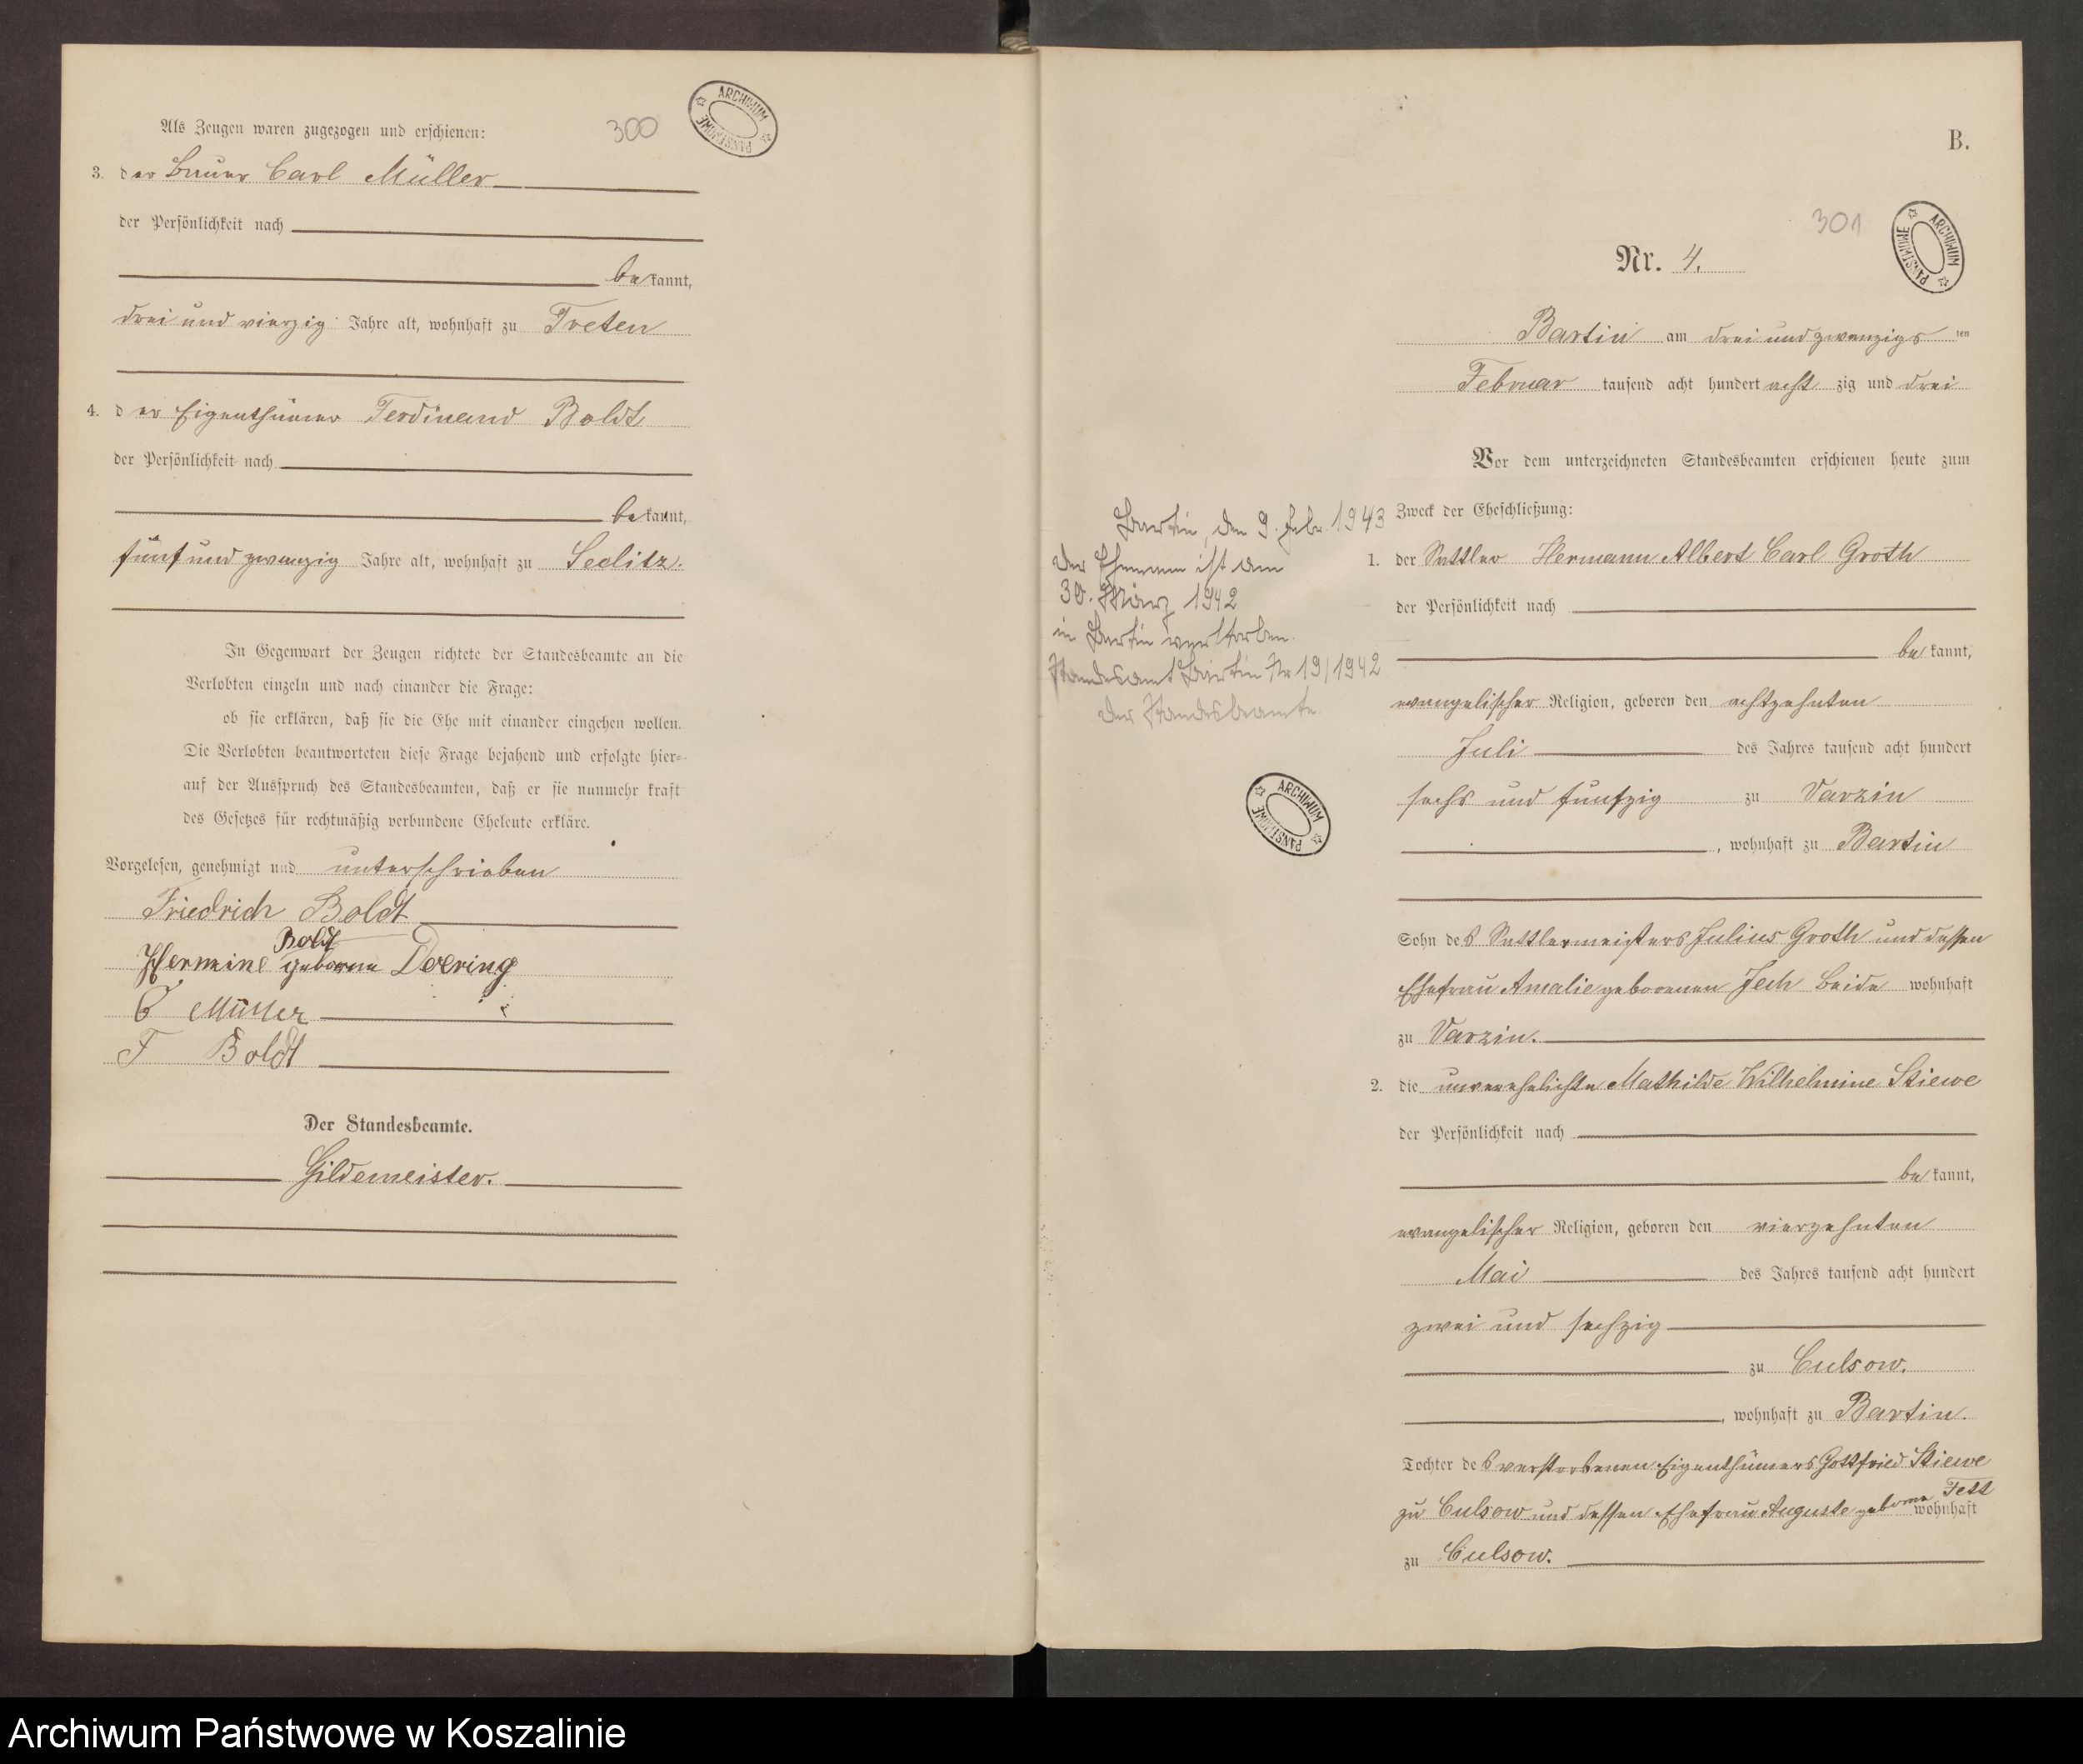 Als Zeugen waren zugezogen und erschienen:
300
ARCHIWUM PAŃSTWOWE
3. der Bauer Carl Müller
der Persönlichkeit nach
bekannt,
drei und vierzig Jahre alt, wohnhaft zu Treten
4. der Eigenthümer Ferdinand Boldt
der Persönlichkeit nach
bekannt,
fünf und zwanzig Jahre alt, wohnhaft zu Seelitz.
In Gegenwart der Zeugen richtete der Standesbeamte an die
Verlobten einzeln und nach einander die Frage:
ob sie erklären, daß sie die Ehe mit einander eingehen wollen.
Die Verlobten beantworteten diese Frage bejahend und erfolgte hier-
auf der Ausspruch des Standesbeamten, daß er sie nunmehr kraft
des Gesetzes für rechtmäßig verbundene Eheleute erkläre.
Vorgelesen, genehmigt und unterschrieben
Friedrich Boldt
Boldt
Hermine geborene Doering
C Müller
F Boldt
Der Standesbeamte.
Gildemeister.
B.
301
ARCHIWUM PAŃSTWOWE
Nr. 4.
Bartin am drei und zwanzigsten
Februar tausend acht hundert achtzig und drei
Vor dem unterzeichneten Standesbeamten erschienen heute zum
Zweck der Eheschließung:
1. der Sattler Hermann Albert Carl Groth
der Persönlichkeit nach
bekannt,
evangelischer Religion, geboren den achtzehnten
Juli des Jahres tausend acht hundert
sechs und fünfzig zu Varzin
, wohnhaft zu Bartin
Sohn des Sattlermeisters Julius Groth und dessen
Ehefrau Amalie geborenen Jech beide wohnhaft
zu Varzin.
2. die unverehelichte Mathilde Wilhelmine Stiewe
der Persönlichkeit nach
bekannt,
evangelischer Religion, geboren den vierzehnten
Mai des Jahres tausend acht hundert
zwei und sechzig
zu Culsow.
, wohnhaft zu Bartin.
Tochter des verstorbenen Eigenthümers Gottfried Stiewe
zu Culsow und dessen Ehefrau Auguste geborne Fett wohnhaft
zu Culsow.
Bartin, den 9. Febr. 1943
Der Ehemann ist am
30. März 1942
in Bartin verstorben.
Standesamt Bartin Nr 19/1942
Der Standesbeamte.
ARCHIWUM PAŃSTWOWE
Archiwum Państwowe w Koszalinie